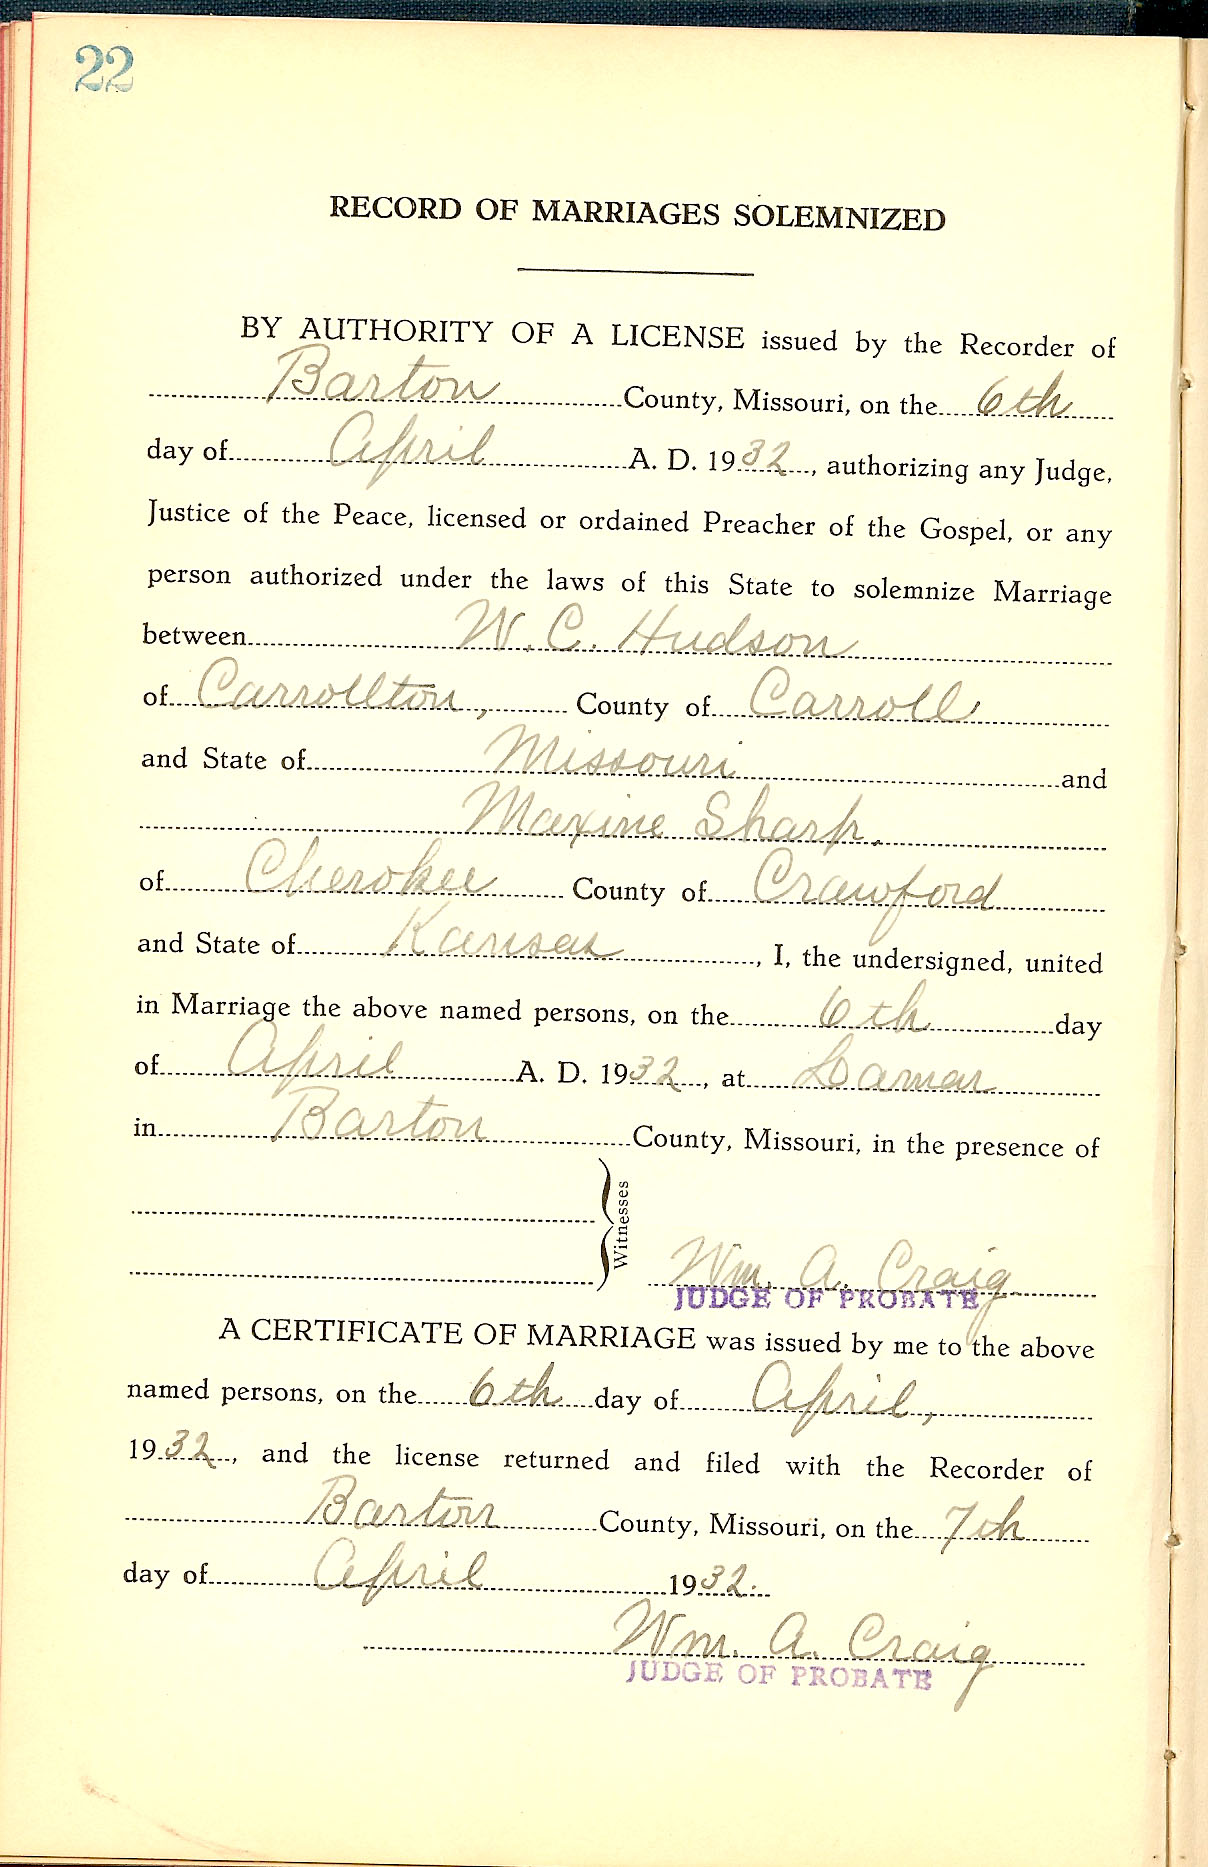 22
RECORD OF MARRIAGES SOLEMNIZED
BY AUTHORITY OF A LICENSE issued by the Recorder of
Barton County, Missouri, on the 6th
day of April A. D. 1932, authorizing any Judge,
Justice of the Peace, licensed or ordained Preacher of the Gospel, or any
person authorized under the laws of this State to solemnize Marriage
between W. C. Hudson
of Carrollton, County of Carroll
and State of Missouri and
Maxine Sharp.
of Cherokee County of Crawford
and State of Kansas, I, the undersigned, united
in Marriage the above named persons, on the 6th day
of April A. D. 1932, at Lamar
in Barton County, Missouri, in the presence of
Witnesses
Wm. A. Craig
JUDGE OF PROBATE
A CERTIFICATE OF MARRIAGE was issued by me to the above
named persons, on the 6th day of April,
1932, and the license returned and filed with the Recorder of
Barton County, Missouri, on the 7th
day of April 1932.
Wm. A. Craig
JUDGE OF PROBATE